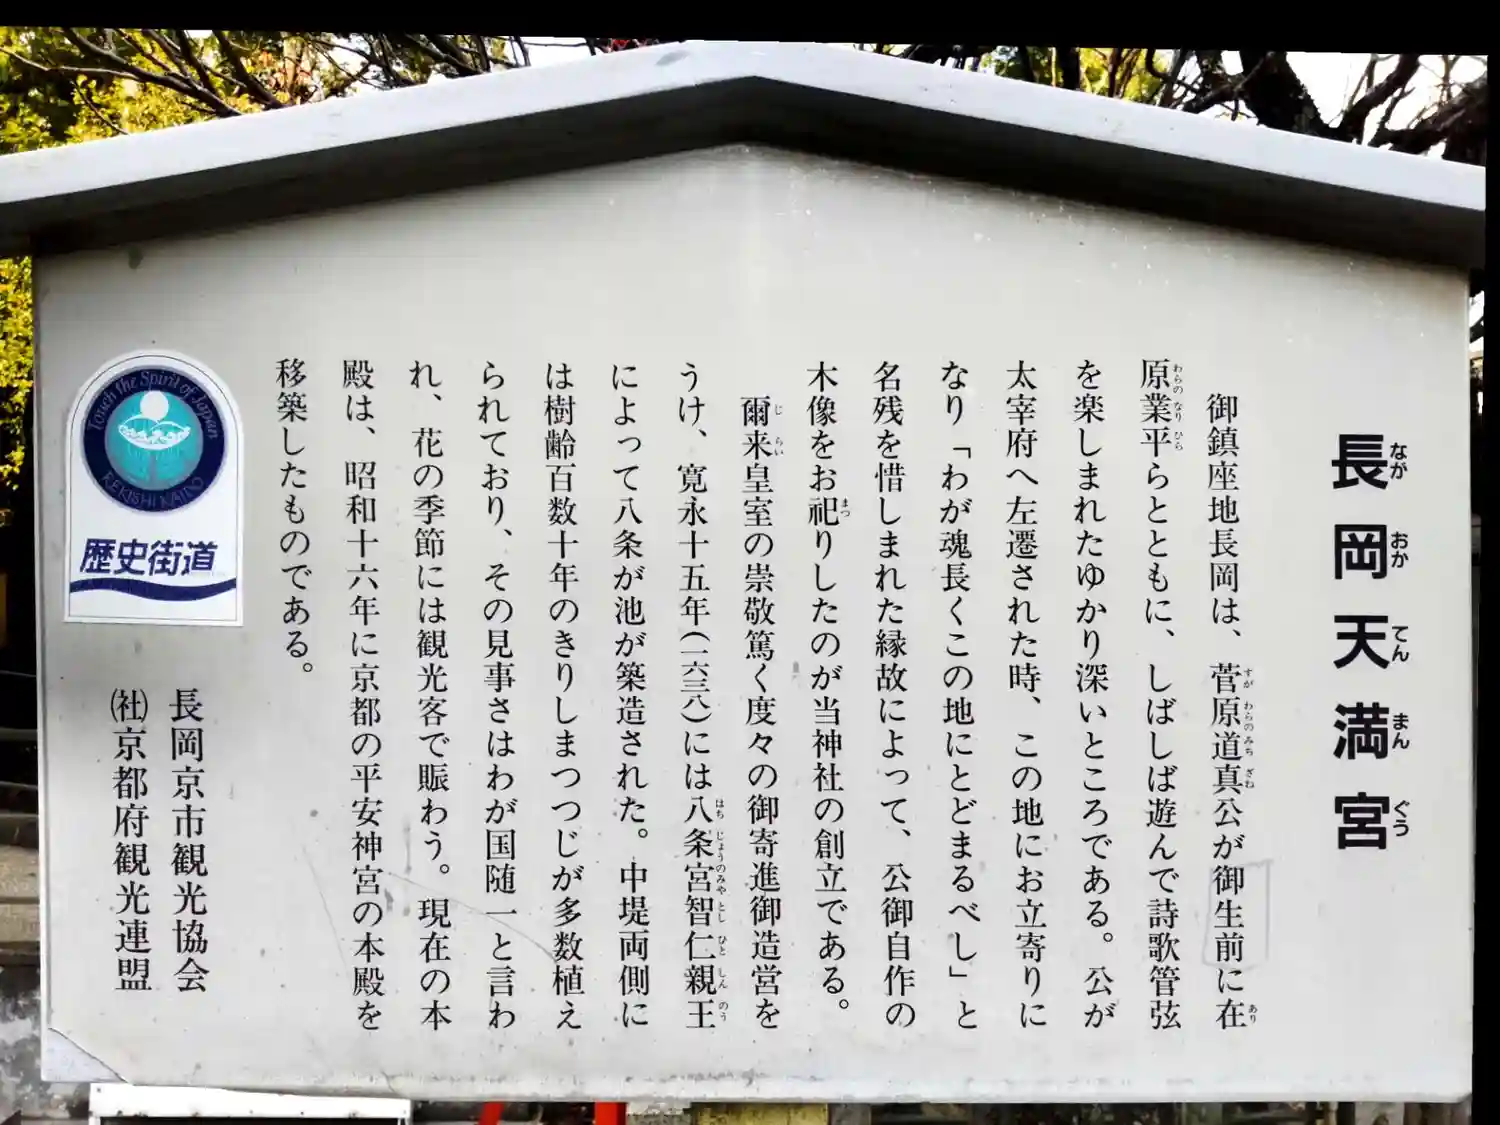 長岡天満宮
ながおかてんまんぐう
御鎮座地長岡は、菅原道真公が御生前に在
すがわらのみちざね
あり
原業平らとともに、しばしば遊んで詩歌管弦
わらのなりひら
を楽しまれたゆかり深いところである。公が
太宰府へ左遷された時、この地にお立寄りに
なり「わが魂長くこの地にとどまるべし」と
名残を惜しまれた縁故によって、公御自作の
木像をお祀りしたのが当神社の創立である。
まつ
爾来皇室の崇敬篤く度々の御寄進御造営を
じらい
うけ、寛永十五年(一六三八)には八条宮智仁親王
はちじょうのみやとしひとしんのう
によって八条が池が築造された。中堤両側に
は樹齢百数十年のきりしまつつじが多数植え
られており、その見事さはわが国随一と言わ
れ、花の季節には観光客で賑わう。現在の本
殿は、昭和十六年に京都の平安神宮の本殿を
移築したものである。
長岡京市観光協会
(社)京都府観光連盟
Touch the Spirit of Japan
REKISHI KAIDO
歴史街道